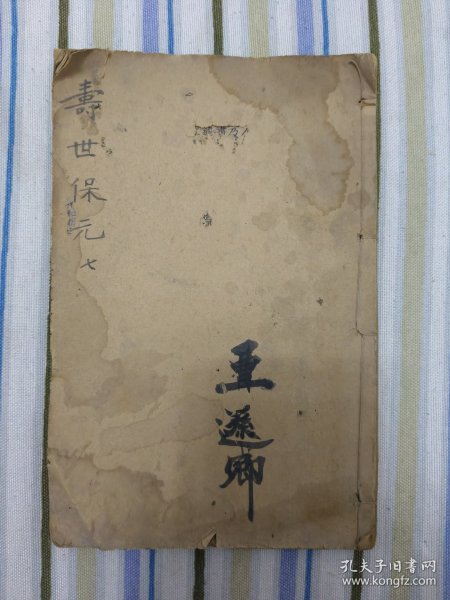 壽世保元 七
亜遜卿
孔夫子旧书网
www.kongfz.com